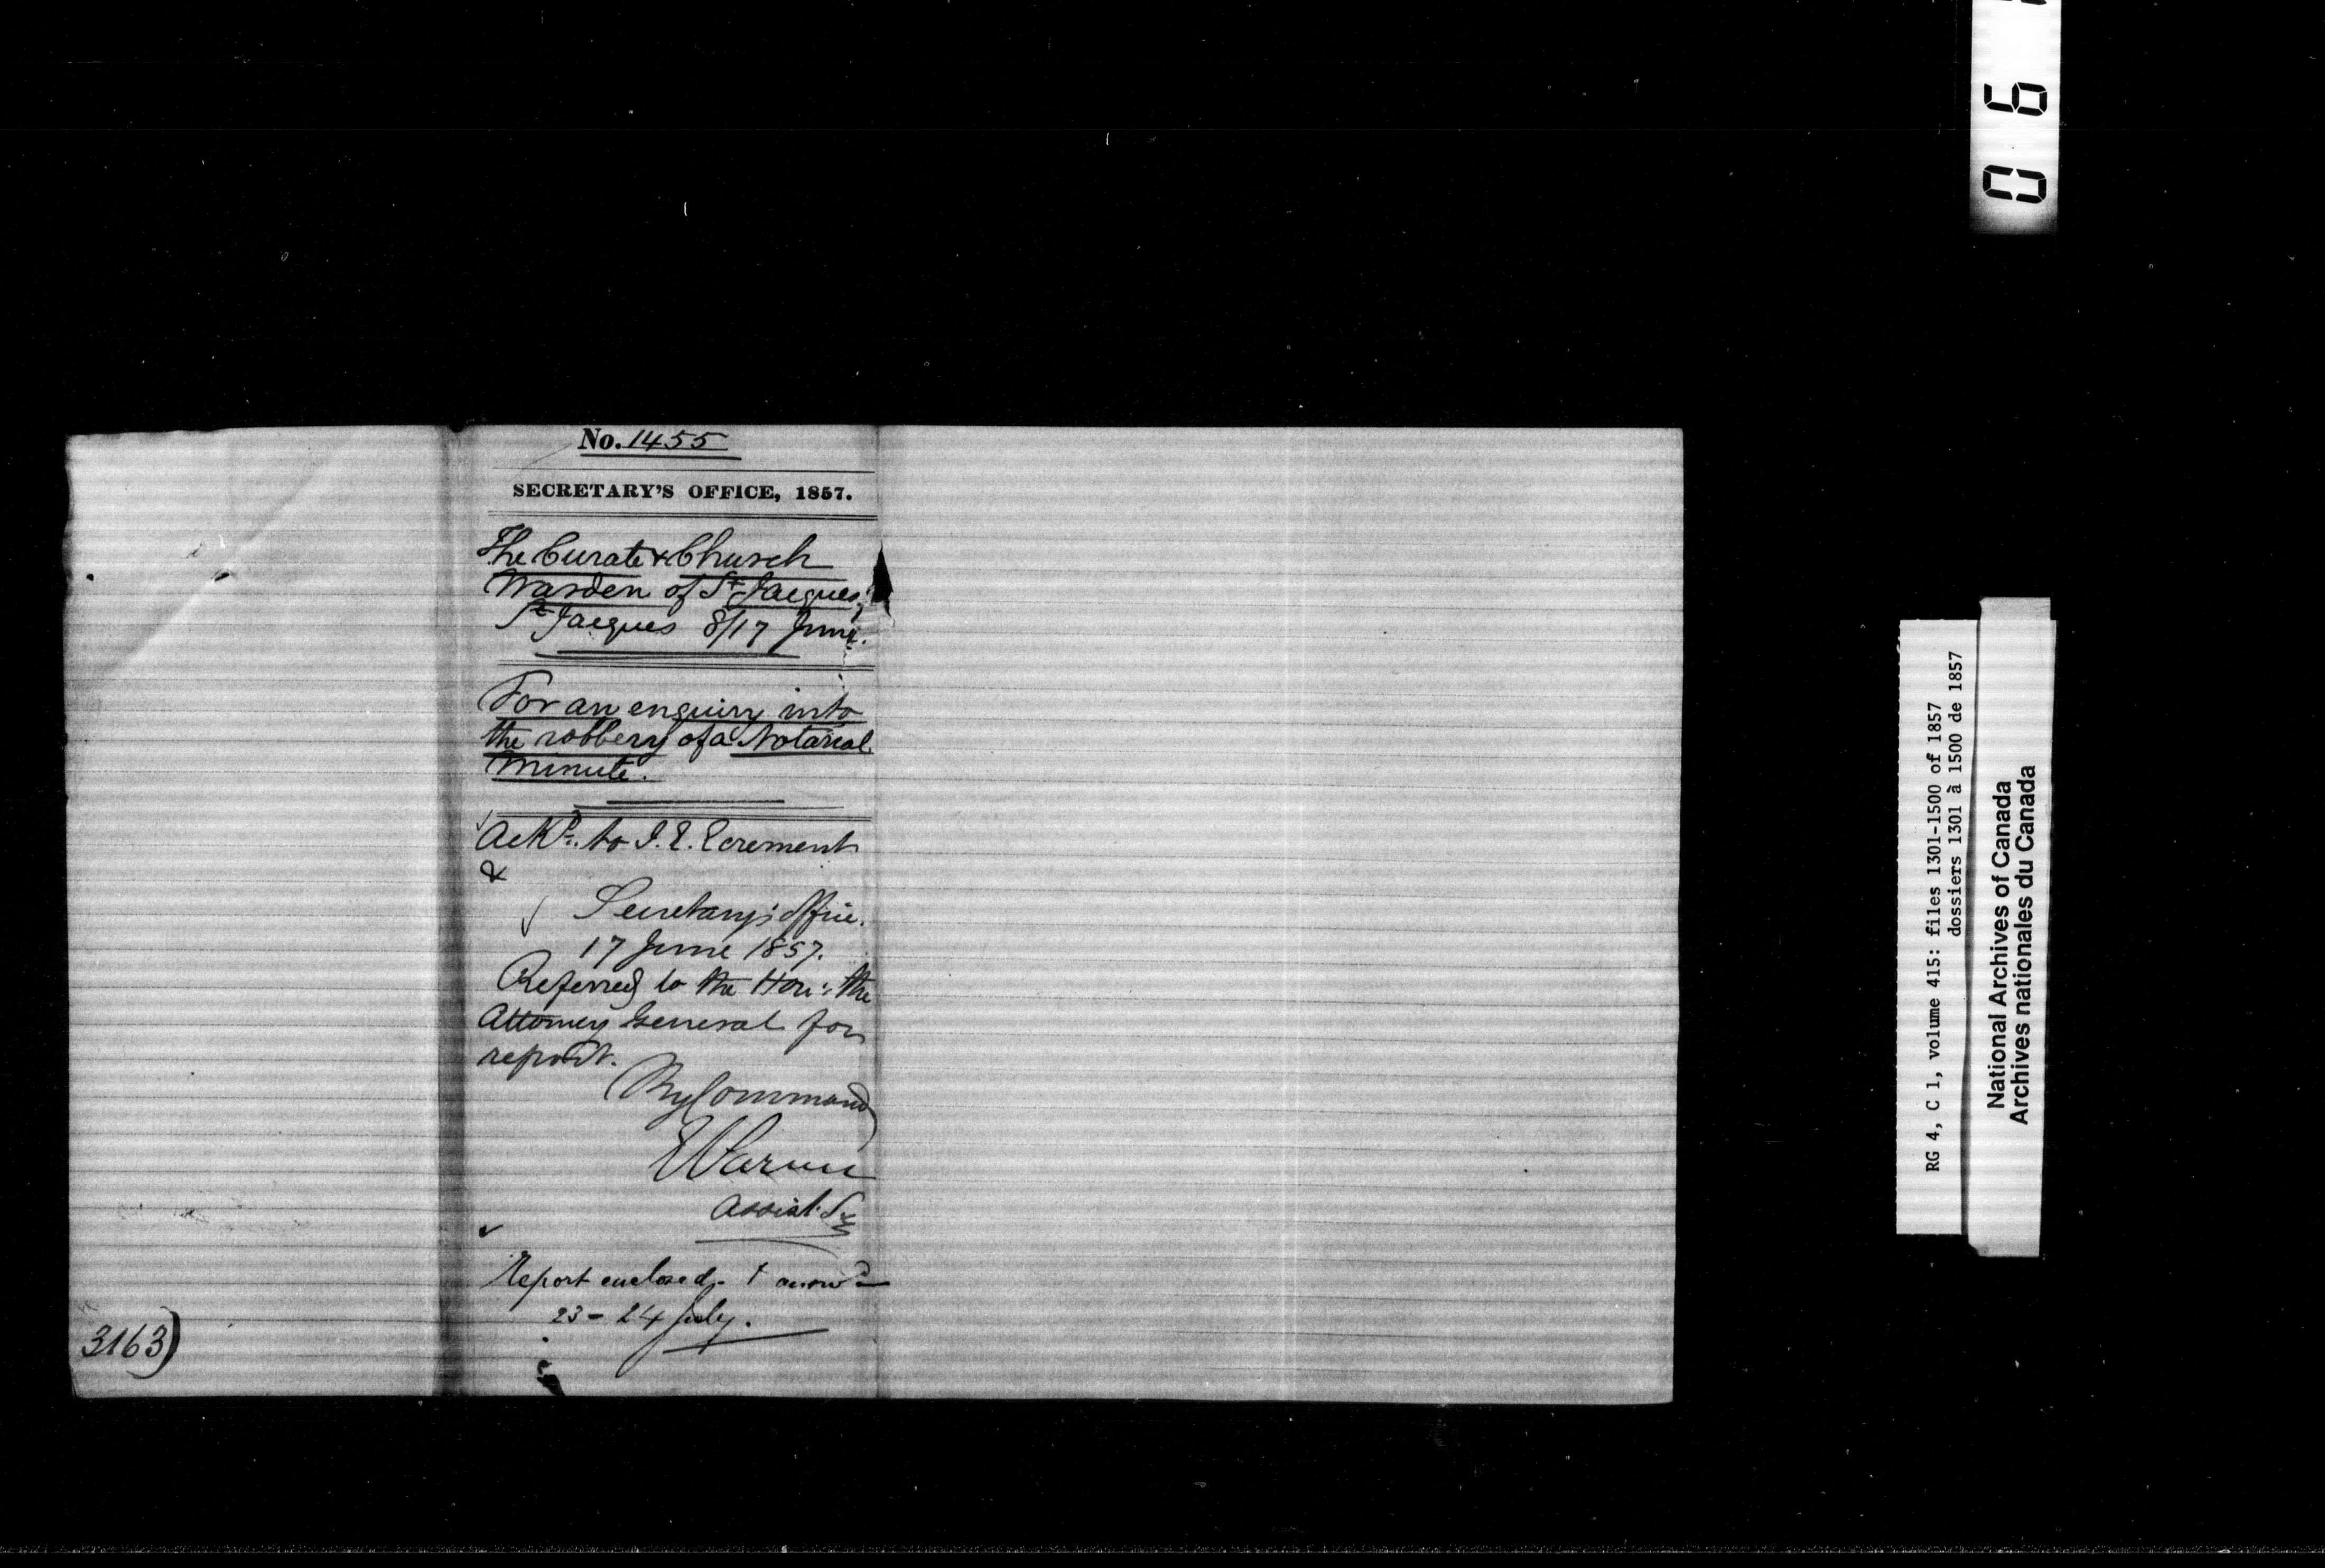 No. 1455
SECRETARY'S OFFICE, 1857.
The Curate & Church
Warden of St Jacques,
St Jacques 8/17 June.
For an enquiry into
the robbery of a Notarial
Minute.
Ackd. to J. E. Ecrement
&
Secretary's Office.
17 June 1857.
Referred to the Hon: the
Attorney General for
report.
By Command
Assist. Sy
Report enclosed - & answd
23 - 24 July.
3163)
06
RG 4, C 1, volume 415: files 1301-1500 of 1857
dossiers 1301 à 1500 de 1857
National Archives of Canada
Archives nationales du Canada